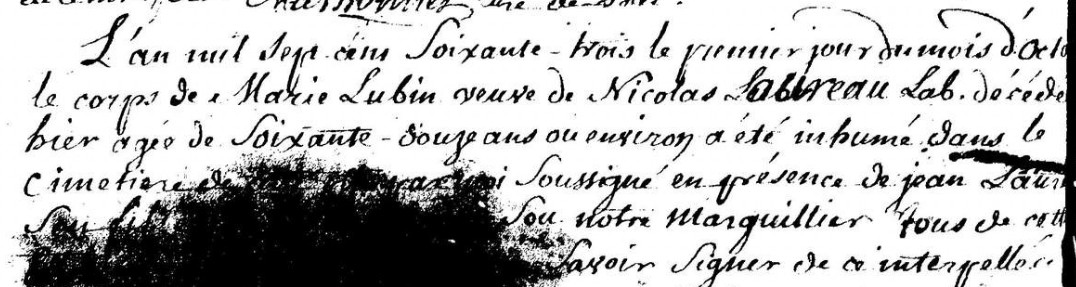 L'an mil sept cens soixante-trois le premier jour du mois d'Octo
le corps de Marie Lubin veuve de Nicolas Laureau Lab. décédé
hier agée de soixante-douze ans ou environ a été inhumé dans le
cimetiere de par moi soussigné en présence de jean Laur
son fils notre marguillier tous de cett
savoir signer de ce interpellé